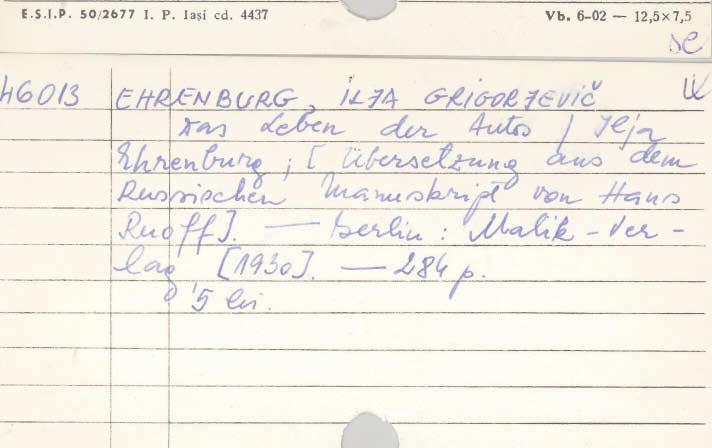 E.S.I.P. 50/2677 I. P. Iași cd. 4437 Vb. 6-02 — 12,5×7,5
46013 EHRENBURG, ILJA GRIGORJEVIČ
Das Leben der Autos / Ilja
Ehrenburg ; [Übersetzung aus dem
Russischen Manuskript von Hans
Ruoff]. — Berlin : Malik-Ver-
lag [1930]. — 284 p.
5 lei.